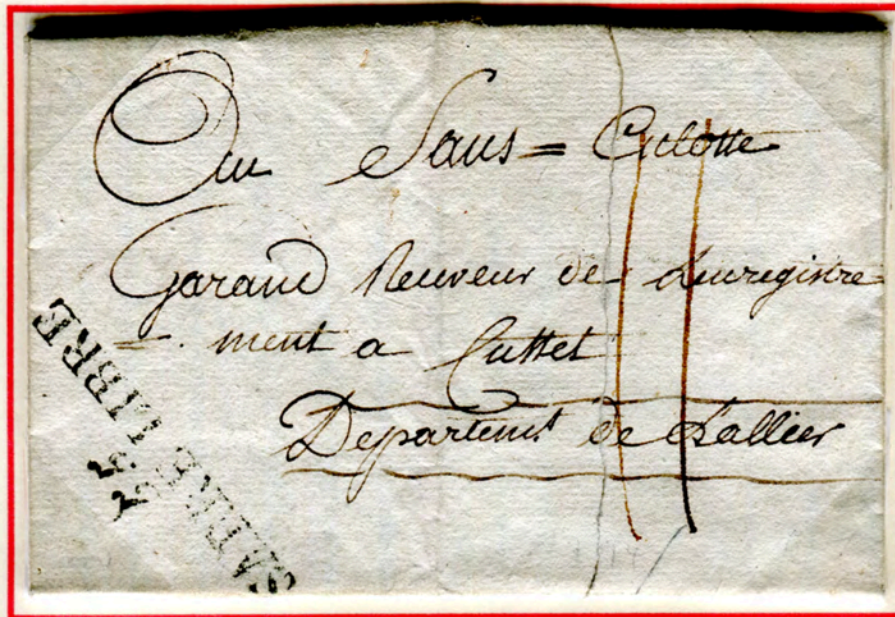 Au Sans = Culotte
Garand Receveur de Lenregistre
= ment a Cusset
Departemt de Lallier
LIBRE